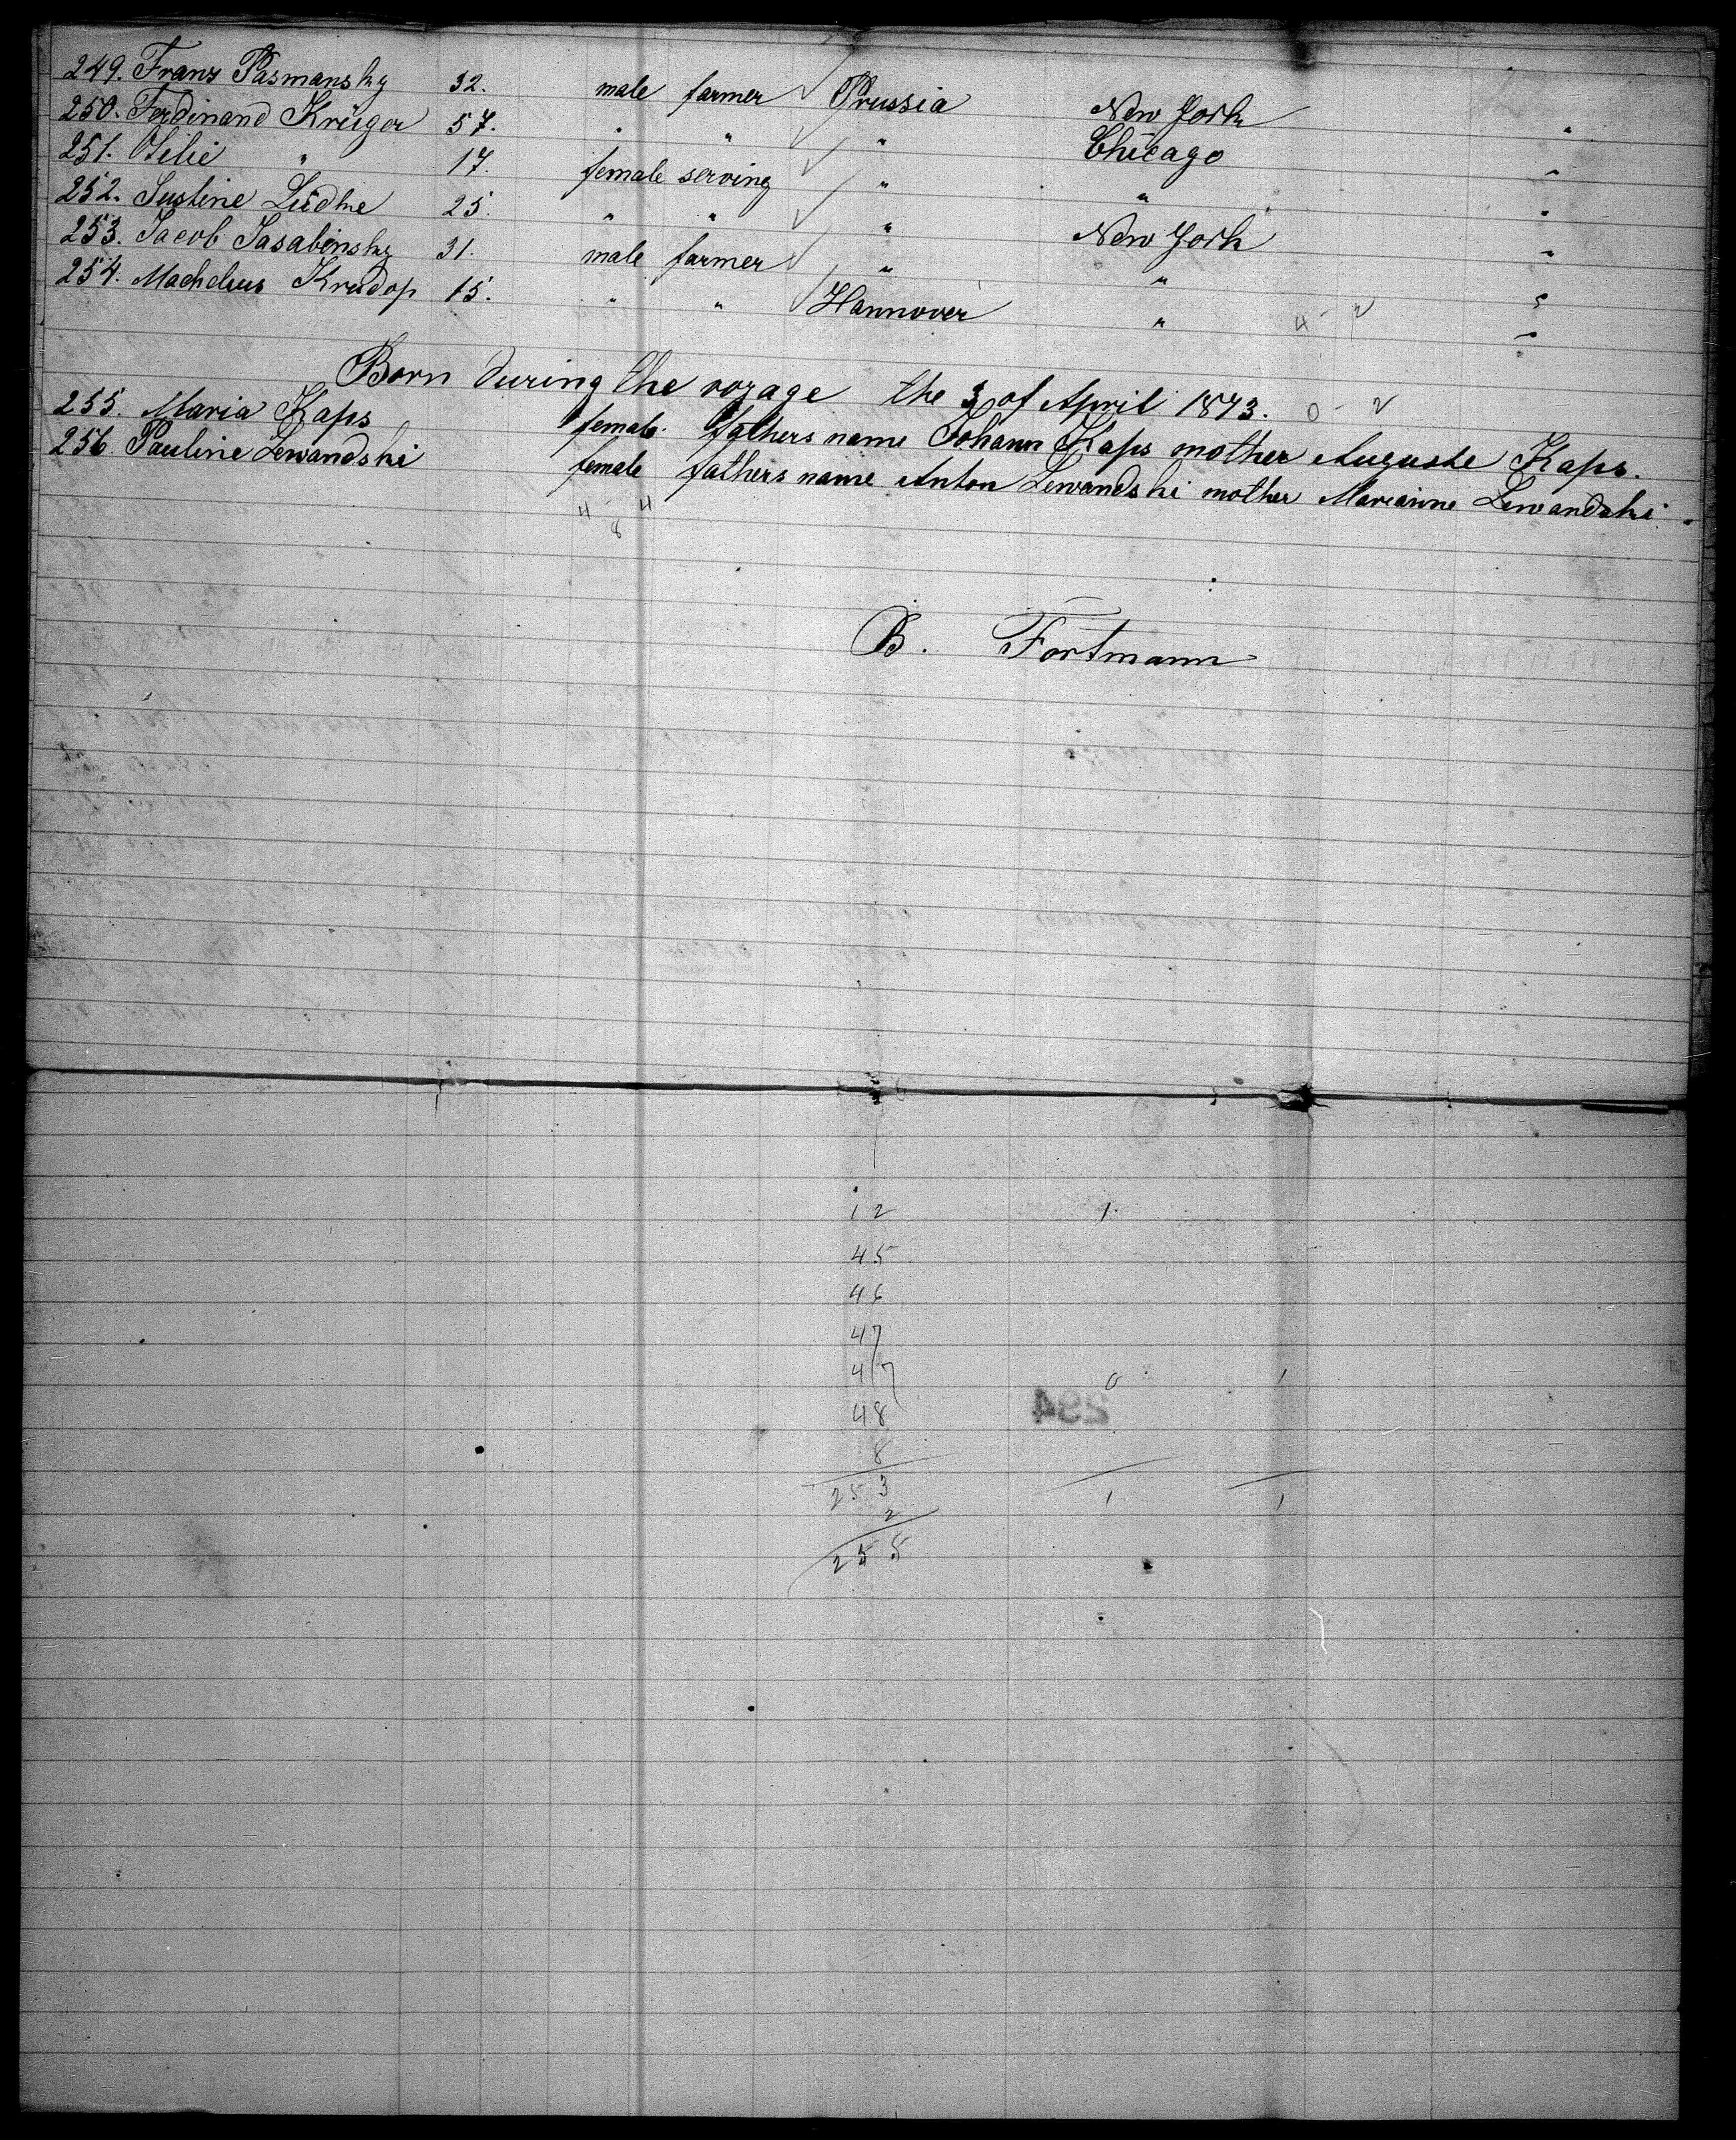 249. Franz Pasmansky 32. male farmer ✓ Prussia New York "
250. Ferdinand Krüger 57. " " ✓ " Chicago "
251. Otilie " 17. female serving ✓ " " "
252. Justine Lüdke 25. " " ✓ " New York "
253. Jacob Jasabinsky 31. male farmer ✓ " "
254. 15. " " ✓ Hannover " 4 - 2 "
Born during the voyage the 3 of April 1873. 0 - 2
255. Maria Kaps female. fathers name Johann Kaps mother Auguste Kaps.
256. Pauline Lewandski female fathers name Anton Lewandski mother Marianne Lewandski.
4 - 4
8
B. Fortmann
12 1
45
46
47
47 0 1
48
294
8
253 1 1
2
255